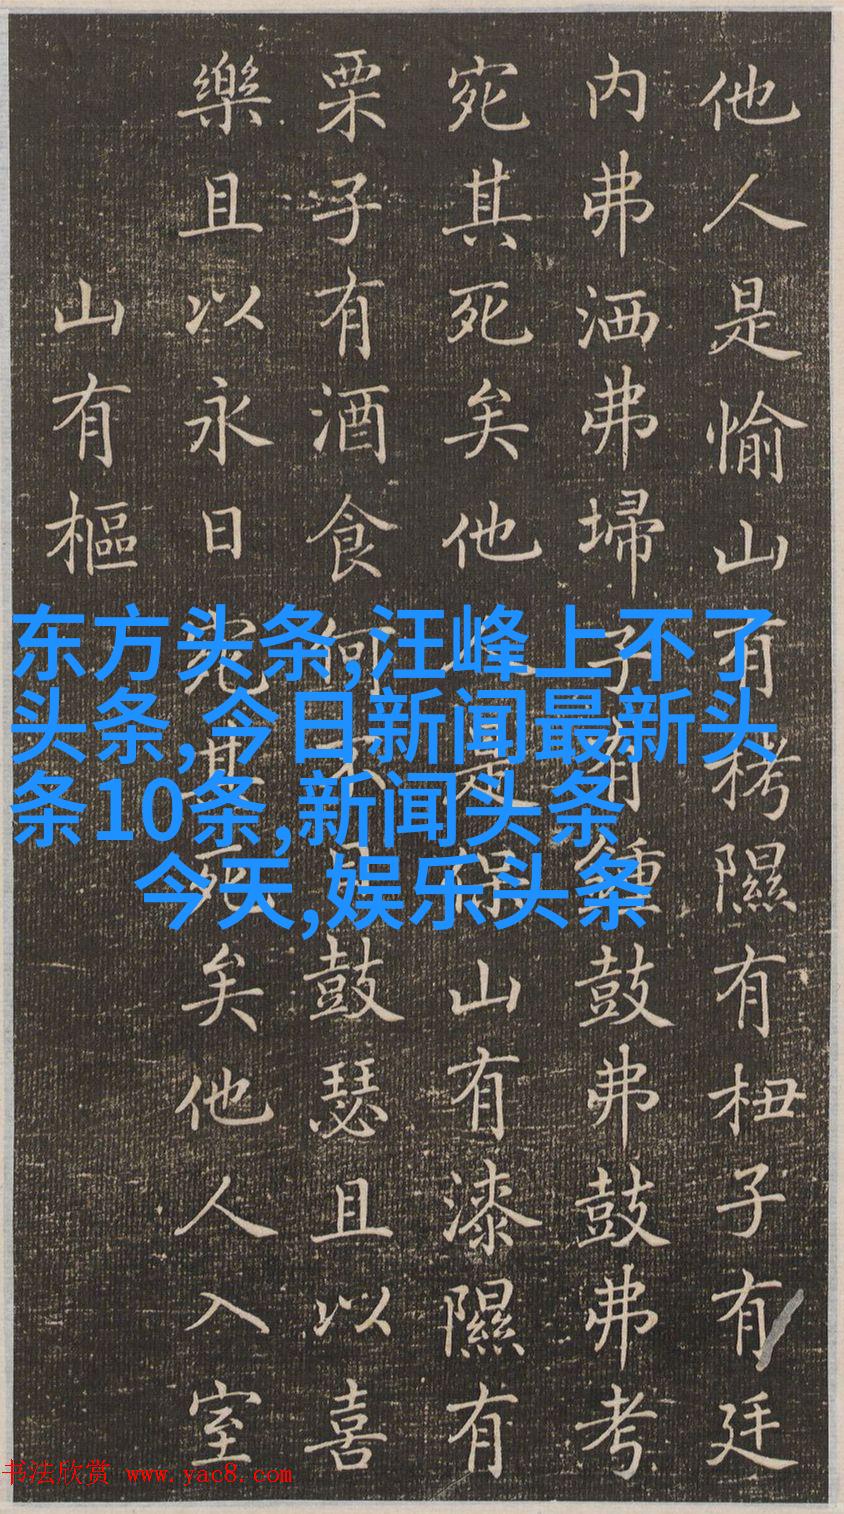 他人是愉山有栲隰有杻子有廷
内弗洒弗埽子有鍾鼓弗鼓弗考
宛其死矣他人是保山有漆隰有
栗子有酒食何不日鼓瑟且以喜
樂且以永日宛其死矣他人入室
山有樞
东方头条,汪峰上不了
头条,今日新闻最新头
条10条,新闻头条
今天,娱乐头条
书法欣赏 www.yac8.com